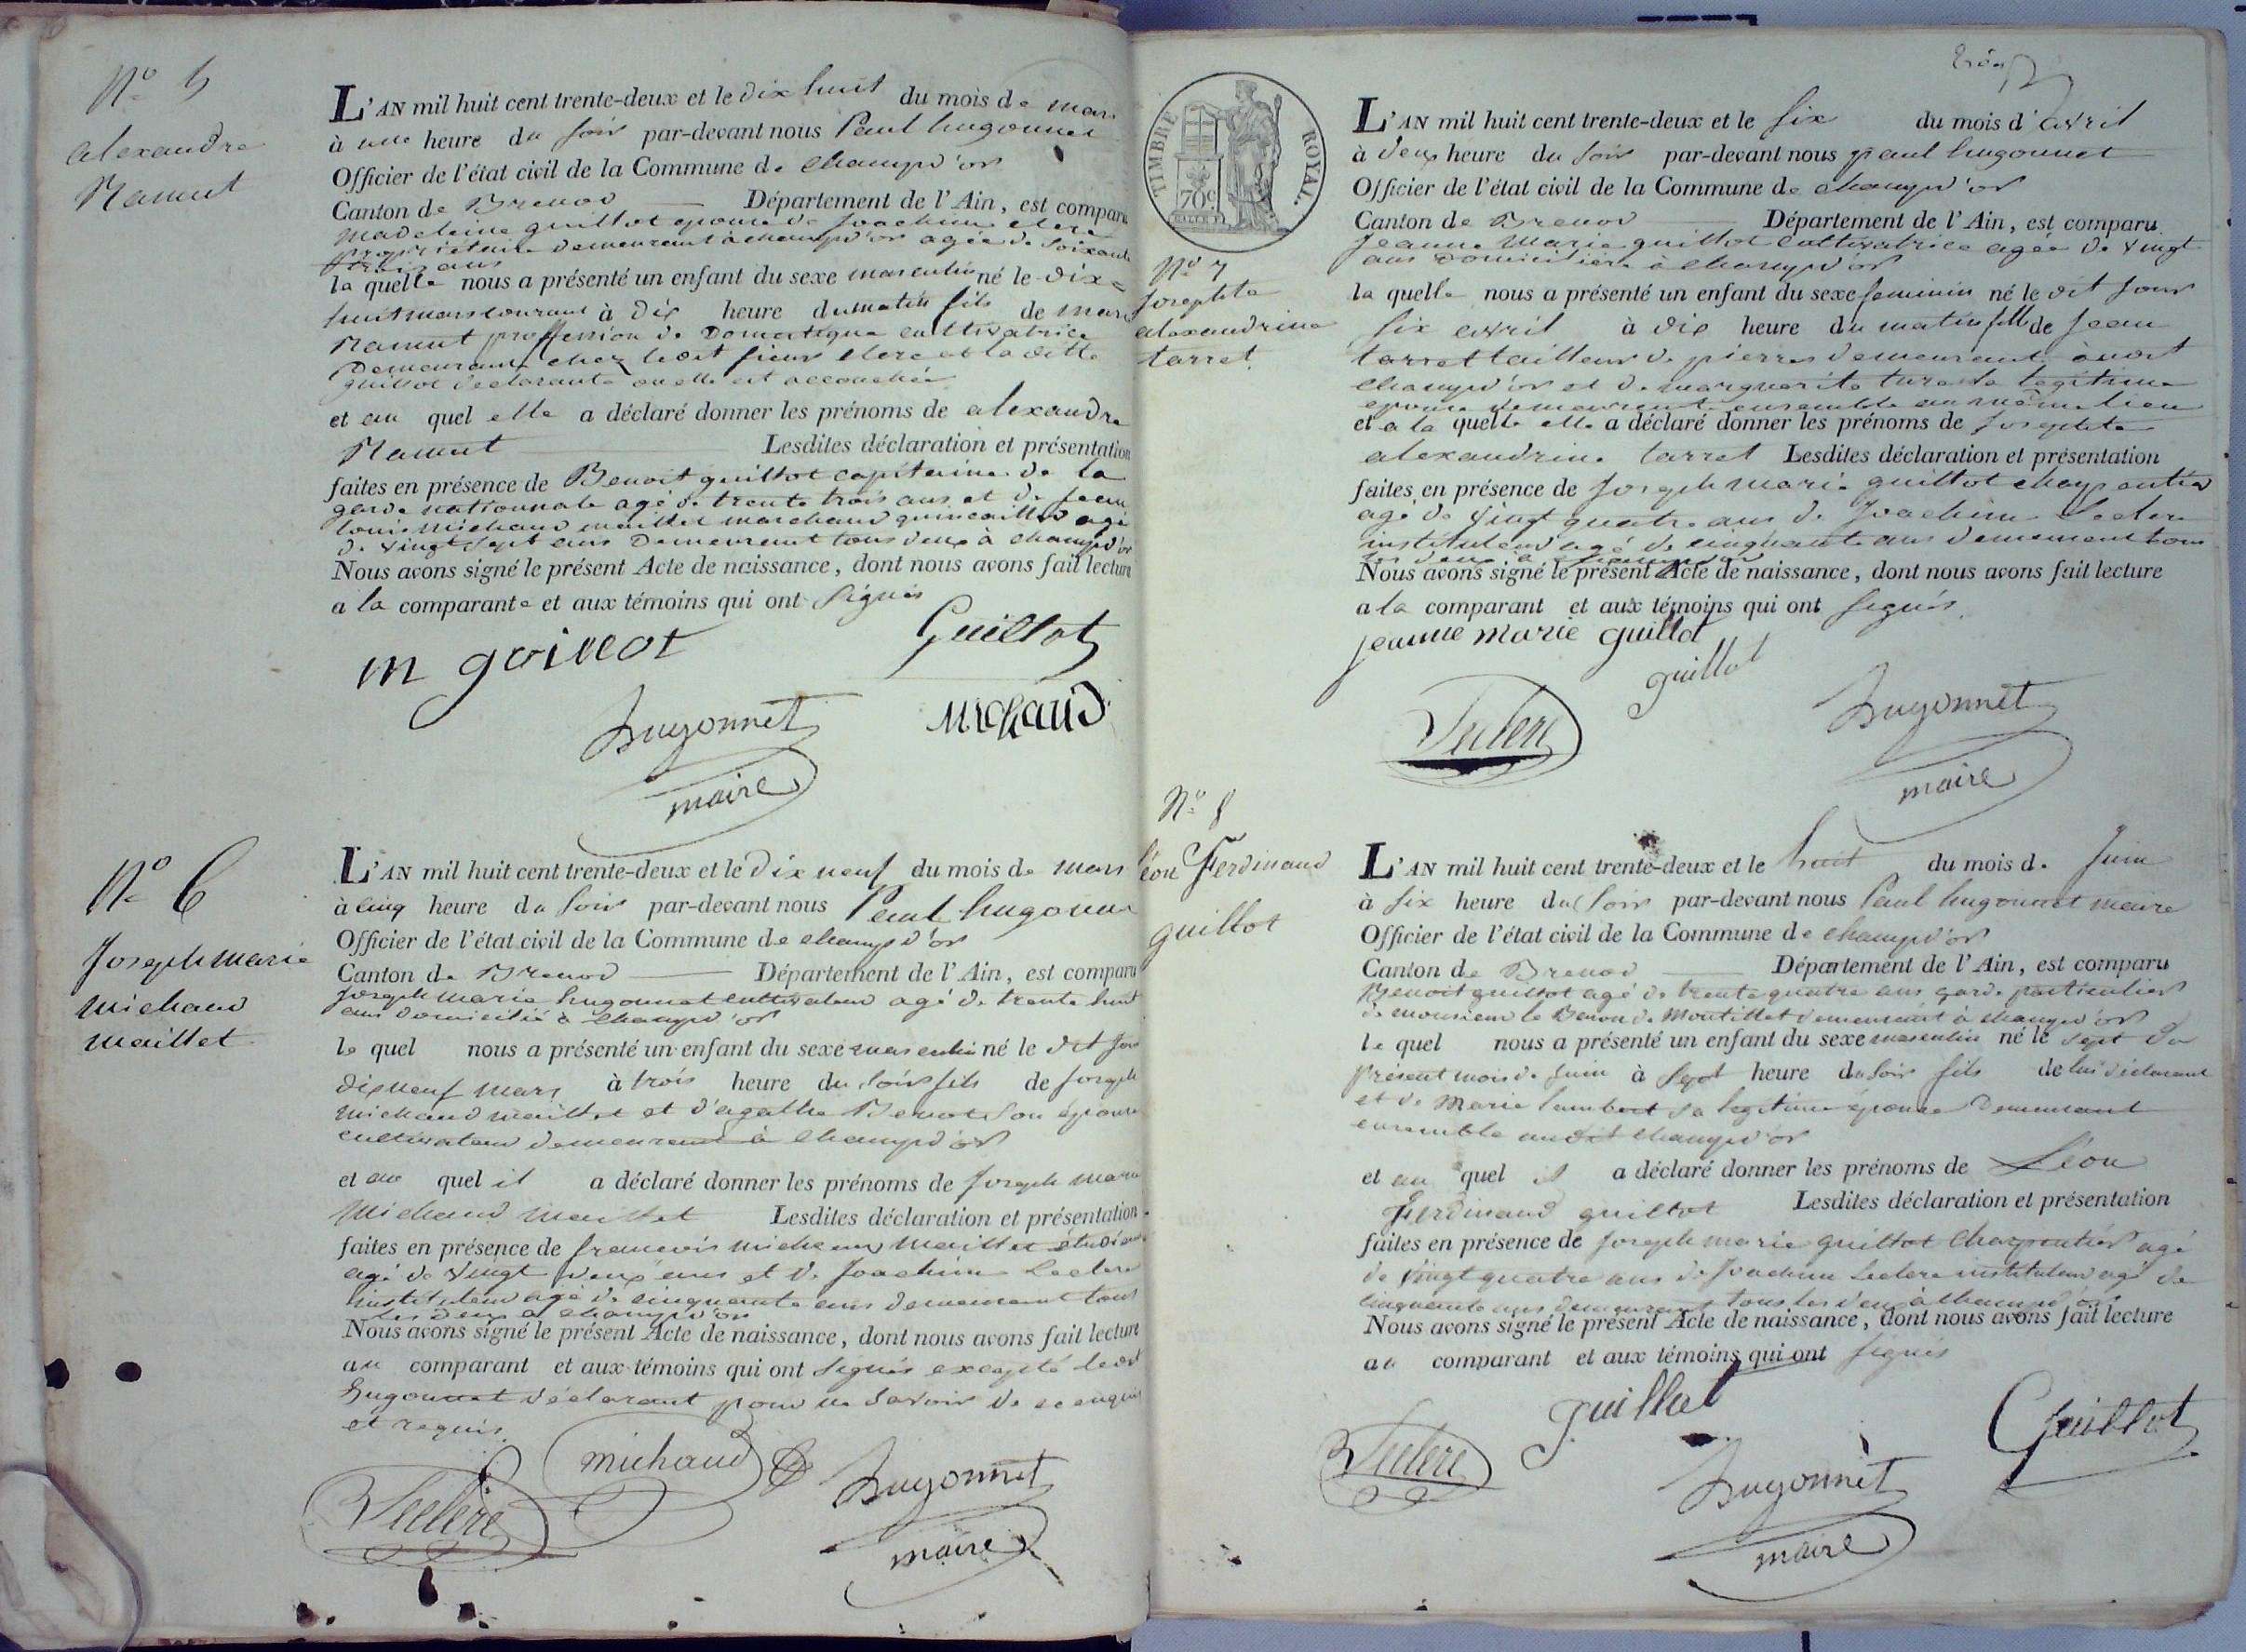 N.º 5
alexandre
Ramut
L'AN mil huit cent trente-deux et le dix huit du mois de mars
à une heure du soir par-devant nous Paul hugonnet
Officier de l'état civil de la Commune de champd'or
Canton de Brenod Département de l'Ain, est comparu
Madeleine guillot epouse de Joachim clere
propriétaire demeurant à champd'or agée de soixante
trois ans
la quelle nous a présenté un enfant du sexe masculin né le dix=
huit mars courant à dix heure du matin fils de marie
Ramut proffession de Domestique cultivatrice
Demeurant chez ledit sieur clere et la ditte
guillot declarante ou elle est accouchée
et au quel elle a déclaré donner les prénoms de alexandre
Ramut Lesdites déclaration et présentation
faites en présence de Benoit guillot capitaine de la
garde nationnale agé de trente trois ans et de jean
louis michaud maillet marchand quincaillier agé
de vingt sept ans Demeurant tous deux à champd'or
Nous avons signé le présent Acte de naissance, dont nous avons fait lecture
a la comparante et aux témoins qui ont signés
m goillot Guillot
hugonnet michaud
maire
N.º 6
Joseph marie
michaud
maillet
L'AN mil huit cent trente-deux et le Dix neuf du mois de mars
à cinq heure du soir par-devant nous Paul hugonnet
Officier de l'état civil de la Commune de champd'or
Canton de Brenod Département de l'Ain, est comparu
joseph marie hugonnet cultivateur agé de trente huit
ans domicilié à champd'or
le quel nous a présenté un enfant du sexe masculin né le dit jour
dix neuf mars à trois heure du soir fils de joseph
michaud maillet et d'agathe Benot son épouse
cultivateur demeurant à champd'or
et au quel il a déclaré donner les prénoms de joseph marie
Michaud maillet Lesdites déclaration et présentation
faites en présence de francois michaud maillet étudiant
agé de vingt deux ans et de Joachim Leclere
instituteur agé de cinquante ans demeurant tous
les deux à champd'or
Nous avons signé le présent Acte de naissance, dont nous avons fait lecture
au comparant et aux témoins qui ont signés excepté ledit
hugonnet déclarant pour ne savoir de ce enquis
et requis.
michaud
Leclere hugonnet
maire
TIMBRE ROYAL.
70c
N.º 7
Josephte
alexandrine
tarret.
L'AN mil huit cent trente-deux et le six du mois d'avril
à deux heure du soir par-devant nous paul hugonnet
Officier de l'état civil de la Commune de champd'or
Canton de Brenod Département de l'Ain, est comparu
jeanne Marie guillot cultivatrice agée de vingt
ans domiciliée à champd'or
la quelle nous a présenté un enfant du sexe feminin né le dit jour
six avril à dix heure du matin fille de jean
tarret tailleur de pierres demeurant à
champd'or et de marguerite sa legitime
epouse demeurant ensemble au même lieu
et a la quelle elle a déclaré donner les prénoms de josephte
alexandrine tarret Lesdites déclaration et présentation
faites en présence de joseph marie guillot charpentier
agé de vingt quatre ans de Joachim Leclere
instituteur agé de cinquante ans demeurant tous
les deux à champd'or
Nous avons signé le présent Acte de naissance, dont nous avons fait lecture
a la comparant et aux témoins qui ont signés.
jeanne marie guillot
guillot
Leclere hugonnet
maire
N.º 8
léon Ferdinand
guillot
L'AN mil huit cent trente-deux et le huit du mois de Juin
à six heure du soir par-devant nous Paul hugonnet maire
Officier de l'état civil de la Commune de champd'or
Canton de Brenod Département de l'Ain, est comparu
Benoit guillot agé de trente quatre ans garde particulier
de monsieur le Baron de Montillet demeurant à champd'or
le quel nous a présenté un enfant du sexe masculin né le sept du
présent mois de juin à sept heure du soir fils de lui déclarant
et de Marie lambert sa legitime épouse Demeurant
ensemble audit champd'or
et au quel il a déclaré donner les prénoms de Léon
Ferdinand guillot Lesdites déclaration et présentation
faites en présence de joseph marie guillot charpentier agé
de vingt quatre ans de joachim Leclere instituteur agé de
cinquante ans demeurant tous les deux à champd'or
Nous avons signé le présent Acte de naissance, dont nous avons fait lecture
au comparant et aux témoins qui ont signés
Leclere guillot Guillot
hugonnet
maire